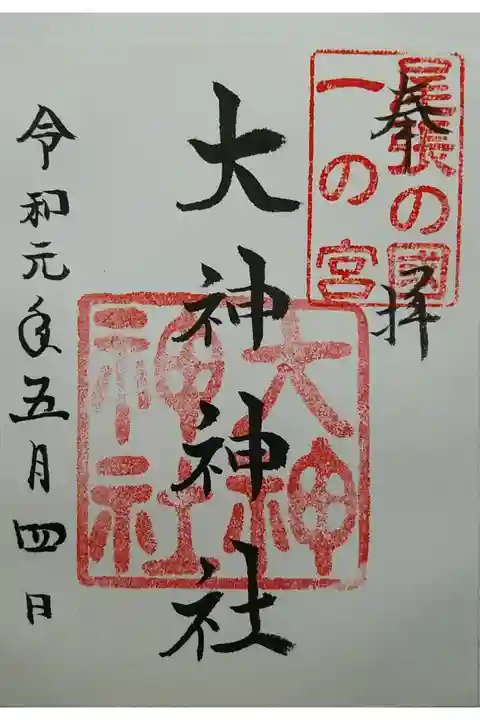 奉拝
尾張の国
一の宮
大神神社
大神
神社
令和元年五月四日